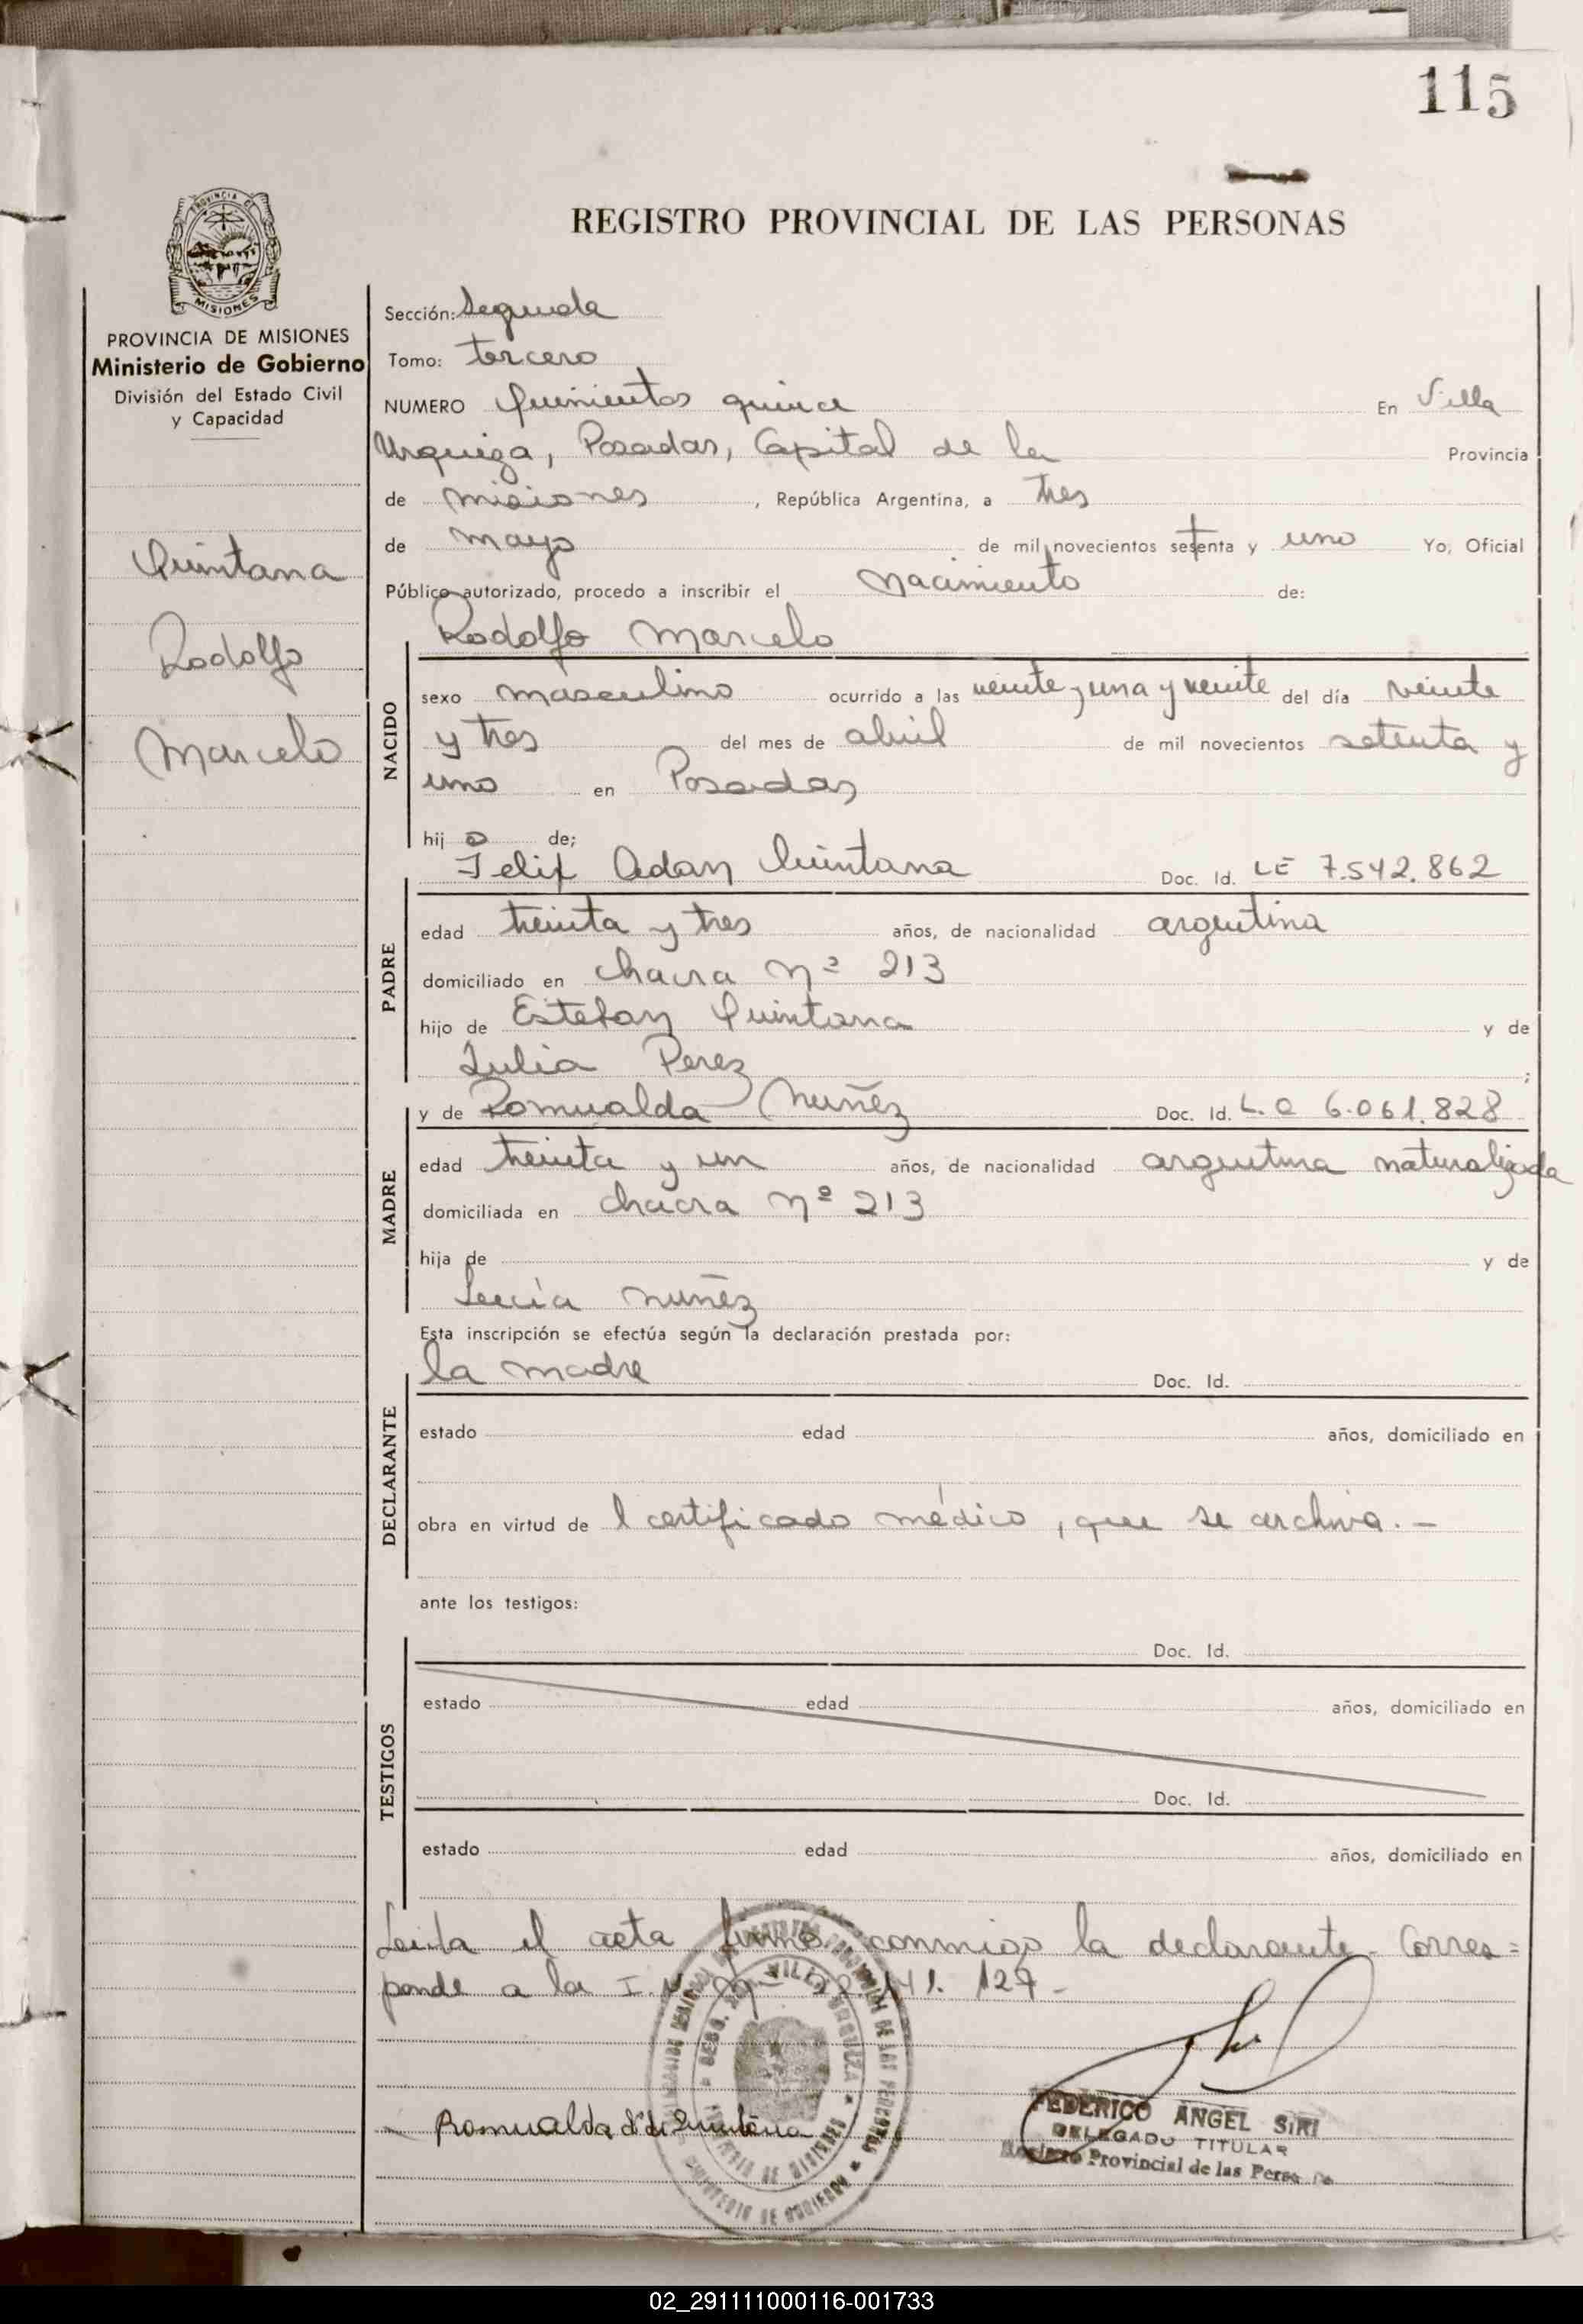 115
REGISTRO PROVINCIAL DE LAS PERSONAS
PROVINCIA DE MISIONES
Ministerio de Gobierno
División del Estado Civil
y Capacidad
Quintana
Rodolfo
Marcelo
Sección: Segunda
Tomo: tercero
NUMERO Quinientos quince En Villa
Urquiza, Posadas, Capital de la Provincia
de misiones, República Argentina, a tres
de mayo de mil novecientos setenta y uno Yo, Oficial
Público autorizado, procedo a inscribir el nacimiento de:
Rodolfo Marcelo
NACIDO
sexo masculino ocurrido a las veinte y una y veinte del día veinte
y tres del mes de abril de mil novecientos setenta y
uno en Posadas
hij o de;
Felix Adan Quintana Doc. Id. LE 7.542.862
PADRE
edad treinta y tres años, de nacionalidad argentina
domiciliado en chacra nº 213
hijo de Esteban Quintana y de
Julia Perez ;
y de Romualda Nuñez Doc. Id. L.C 6.061.828
MADRE
edad treinta y un años, de nacionalidad argentina naturalizada
domiciliada en chacra nº 213
hija de y de
Lucía nuñez
Esta inscripción se efectúa según la declaración prestada por:
la madre Doc. Id.
DECLARANTE
estado edad años, domiciliado en
obra en virtud de l certificado médico, que se archiva.-
ante los testigos:
Doc. Id.
TESTIGOS
estado edad años, domiciliado en
Doc. Id.
estado edad años, domiciliado en
Leida el acta firma conmigo la declarante. Corres=
ponde a la I. 141. 127-
VILLA URQUIZA
MINISTERIO DE GOBIERNO
Romualda de Quintana
FEDERICO ANGEL SIRI
DELEGADO TITULAR
Provincial de las Perso
PROVINCIA DE
MISIONES
02_291111000116-001733